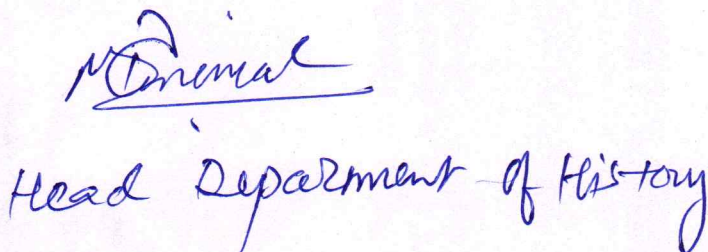 Head Deparment of History